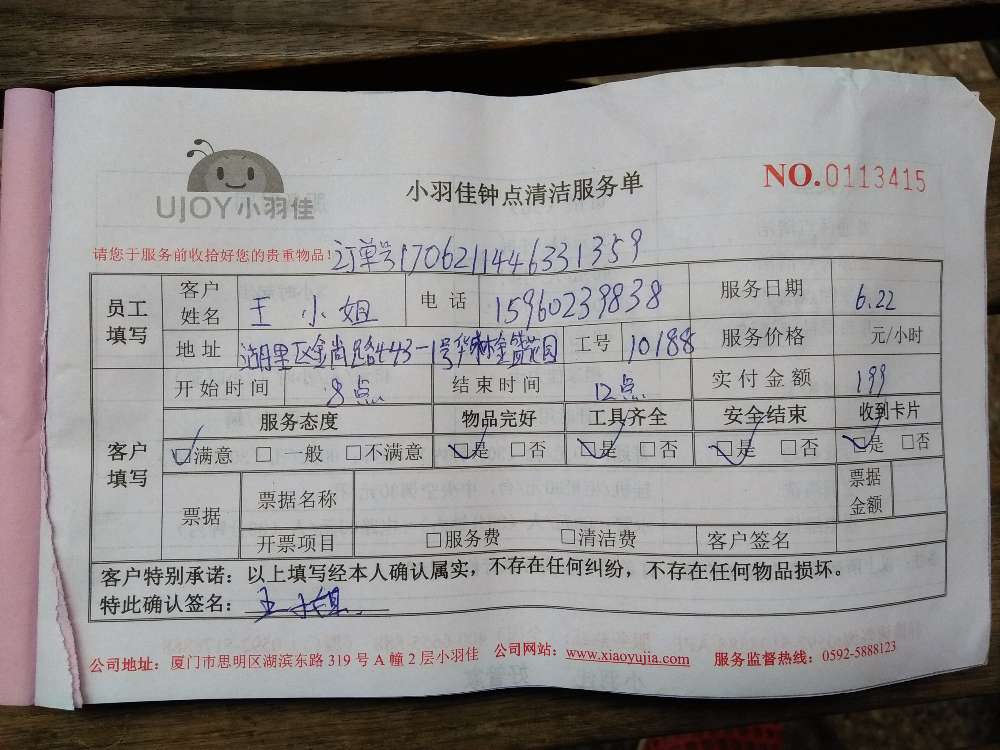 UJOY小羽佳
小羽佳钟点清洁服务单
NO.0113415
请您于服务前收拾好您的贵重物品!
订单号1706211446331359
员工填写 客户姓名 王小姐 电话 15960239838 服务日期 6.22
地址 湖里区金尚路443-1号华林金鹭花园 工号 10188 服务价格 元/小时
客户填写 开始时间 8点 结束时间 12点 实付金额 199
服务态度 物品完好 工具齐全 安全结束 收到卡片
☑满意 □一般 □不满意 ☑是 □否 ☑是 □否 ☑是 □否 ☑是 □否
票据 票据名称 票据金额
开票项目 □服务费 □清洁费 客户签名
客户特别承诺：以上填写经本人确认属实，不存在任何纠纷，不存在任何物品损坏。
特此确认签名：王小姐
公司地址：厦门市思明区湖滨东路 319 号 A 幢 2 层小羽佳 公司网站：www.xiaoyujia.com 服务监督热线：0592-5888123